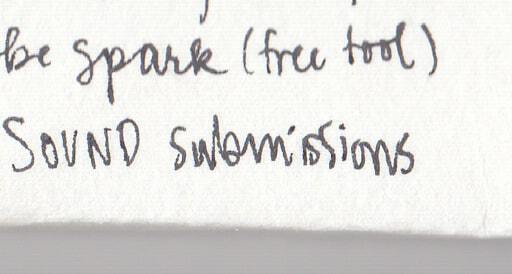 be spark (free tool)
SOUND submissions